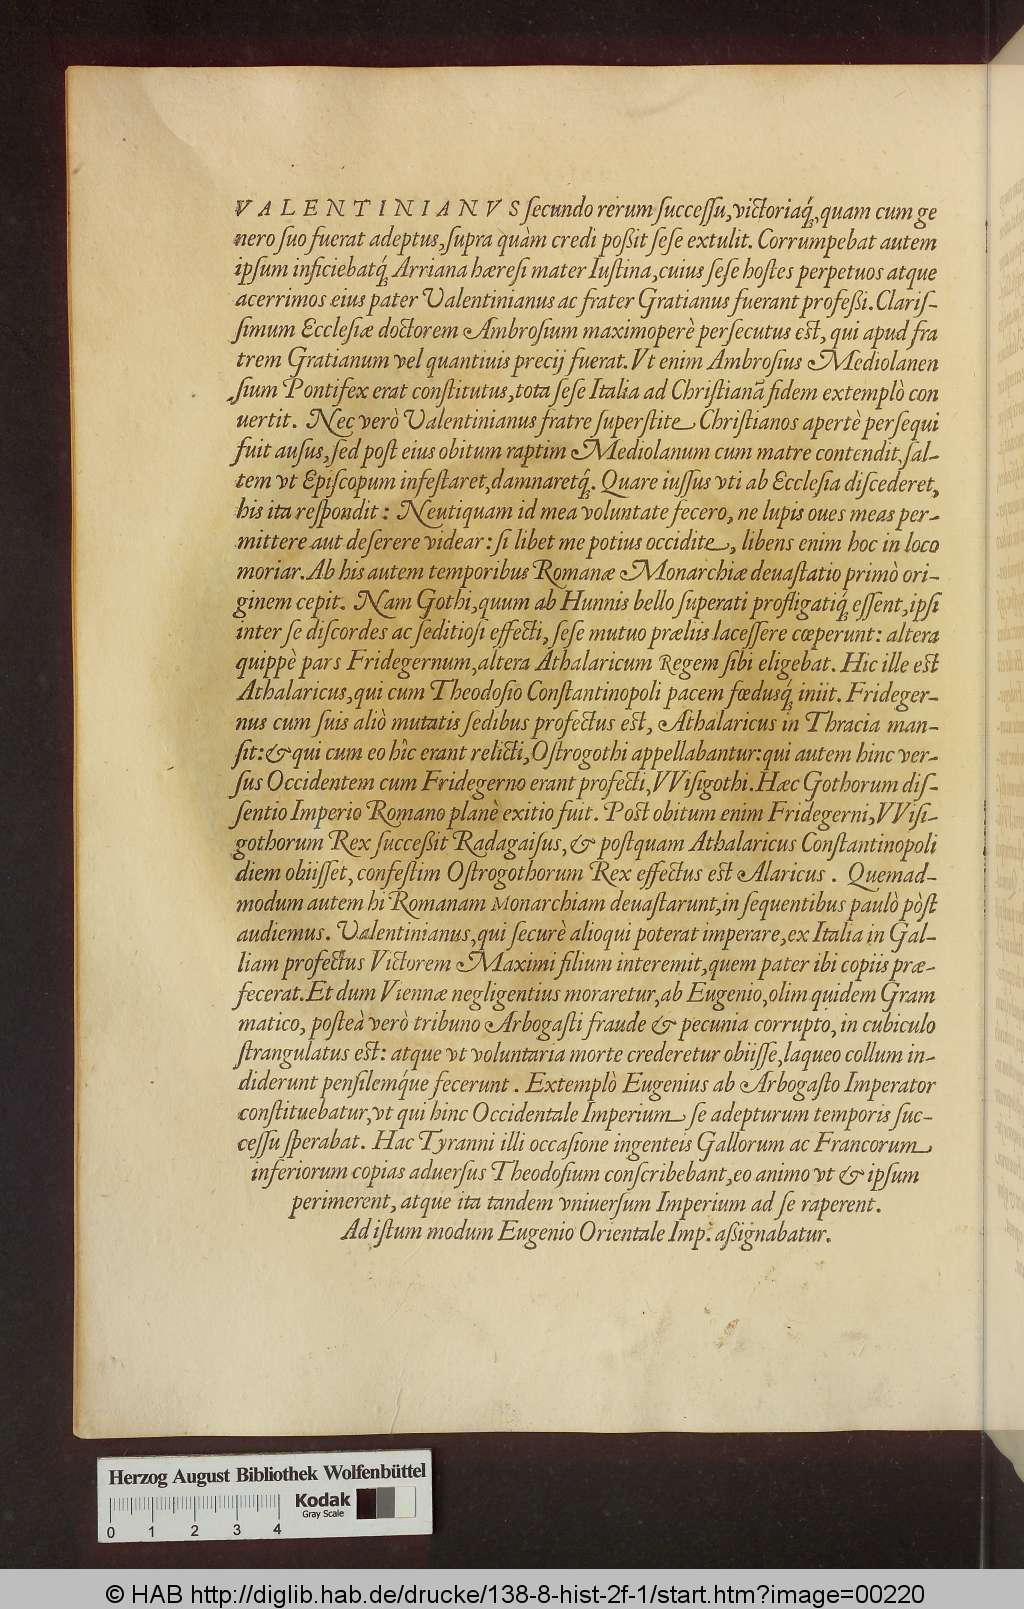 VALENTINIANVS ſecundo rerum ſucceſſu, victoriaq́;, quam cum ge
nero ſuo fuerat adeptus, ſupra quàm credi poßit ſeſe extulit. Corrumpebat autem
ipſum inficiebatq́; Arriana hæreſi mater Iuſtina, cuius ſeſe hoſtes perpetuos atque
acerrimos eius pater Valentinianus ac frater Gratianus fuerant profeßi. Clariſ-
ſimum Eccleſiæ doctorem Ambroſium maximoperè perſecutus est, qui apud fra
trem Gratianum vel quantiuis precij fuerat. Vt enim Ambroſius Mediolanen
ſium Pontifex erat conſtitutus, tota ſeſe Italia ad Chriſtianā fidem extemplò con
uertit. Nec verò Valentinianus fratre ſuperſtite Chriſtianos apertè perſequi
fuit auſus, ſed poſt eius obitum raptim Mediolanum cum matre contendit, ſal-
tem vt Epiſcopum infeſtaret, damnaretq́;. Quare iuſſus vti ab Eccleſia diſcederet,
his ita reſpondit: Neutiquam id mea voluntate fecero, ne lupis oues meas per-
mittere aut deſerere videar: ſi libet me potius occidite, libens enim hoc in loco
moriar. Ab his autem temporibus Romanæ Monarchiæ deuaſtatio primò ori-
ginem cepit. Nam Gothi, quum ab Hunnis bello ſuperati profligatiq́; eſſent, ipſi
inter ſe diſcordes ac ſeditioſi effecti, ſeſe mutuo præliis laceſſere cœperunt: altera
quippè pars Fridegernum, altera Athalaricum Regem ſibi eligebat. Hic ille est
Athalaricus, qui cum Theodoſio Conſtantinopoli pacem fœduſq́; iniit. Frideger-
nus cum ſuis aliò mutatis ſedibus profectus est, Athalaricus in Thracia man-
ſit: & qui cum eo hîc erant relicti, Oſtrogothi appellabantur: qui autem hinc ver-
ſus Occidentem cum Fridegerno erant profecti, VViſigothi. Hæc Gothorum diſ-
ſentio Imperio Romano planè exitio fuit. Post obitum enim Fridegerni, VViſi-
gothorum Rex ſucceßit Radagaiſus, & poſtquam Athalaricus Conſtantinopoli
diem obiiſſet, confeſtim Oſtrogothorum Rex effectus est Alaricus. Quemad-
modum autem hi Romanam Monarchiam deuaſtarunt, in ſequentibus paulò pòſt
audiemus. Valentinianus, qui ſecurè alioqui poterat imperare, ex Italia in Gal-
liam profectus Victorem Maximi filium interemit, quem pater ibi copiis præ-
fecerat. Et dum Viennæ negligentius moraretur, ab Eugenio, olim quidem Gram
matico, poſteà verò tribuno Arbogaſti fraude & pecunia corrupto, in cubiculo
ſtrangulatus est: atque vt voluntaria morte crederetur obiiſſe, laqueo collum in-
diderunt penſilemq́ue fecerunt. Extemplò Eugenius ab Arbogaſto Imperator
conſtituebatur, vt qui hinc Occidentale Imperium ſe adepturum temporis ſuc-
ceſſu ſperabat. Hac Tyranni illi occaſione ingenteis Gallorum ac Francorum
inferiorum copias aduerſus Theodoſium conſcribebant, eo animo vt & ipſum
perimerent, atque ita tandem vniuerſum Imperium ad ſe raperent.
Ad iſtum modum Eugenio Orientale Imp. aßignabatur.
Herzog August Bibliothek Wolfenbüttel
Kodak
Gray Scale
0 1 2 3 4
© HAB http://diglib.hab.de/drucke/138-8-hist-2f-1/start.htm?image=00220